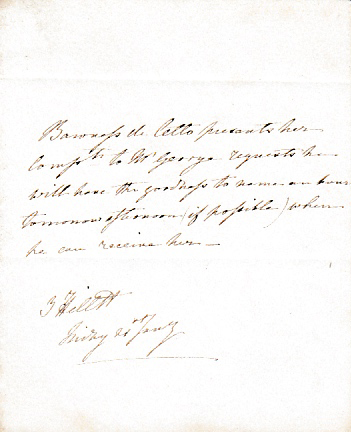 Baroness de Cetto presents her
Compts to Mr George requests he
will have the goodness to name an hour
tomorrow afternoon (if possible) when
he can receive her —
3 Hill St
Friday 21st Jany